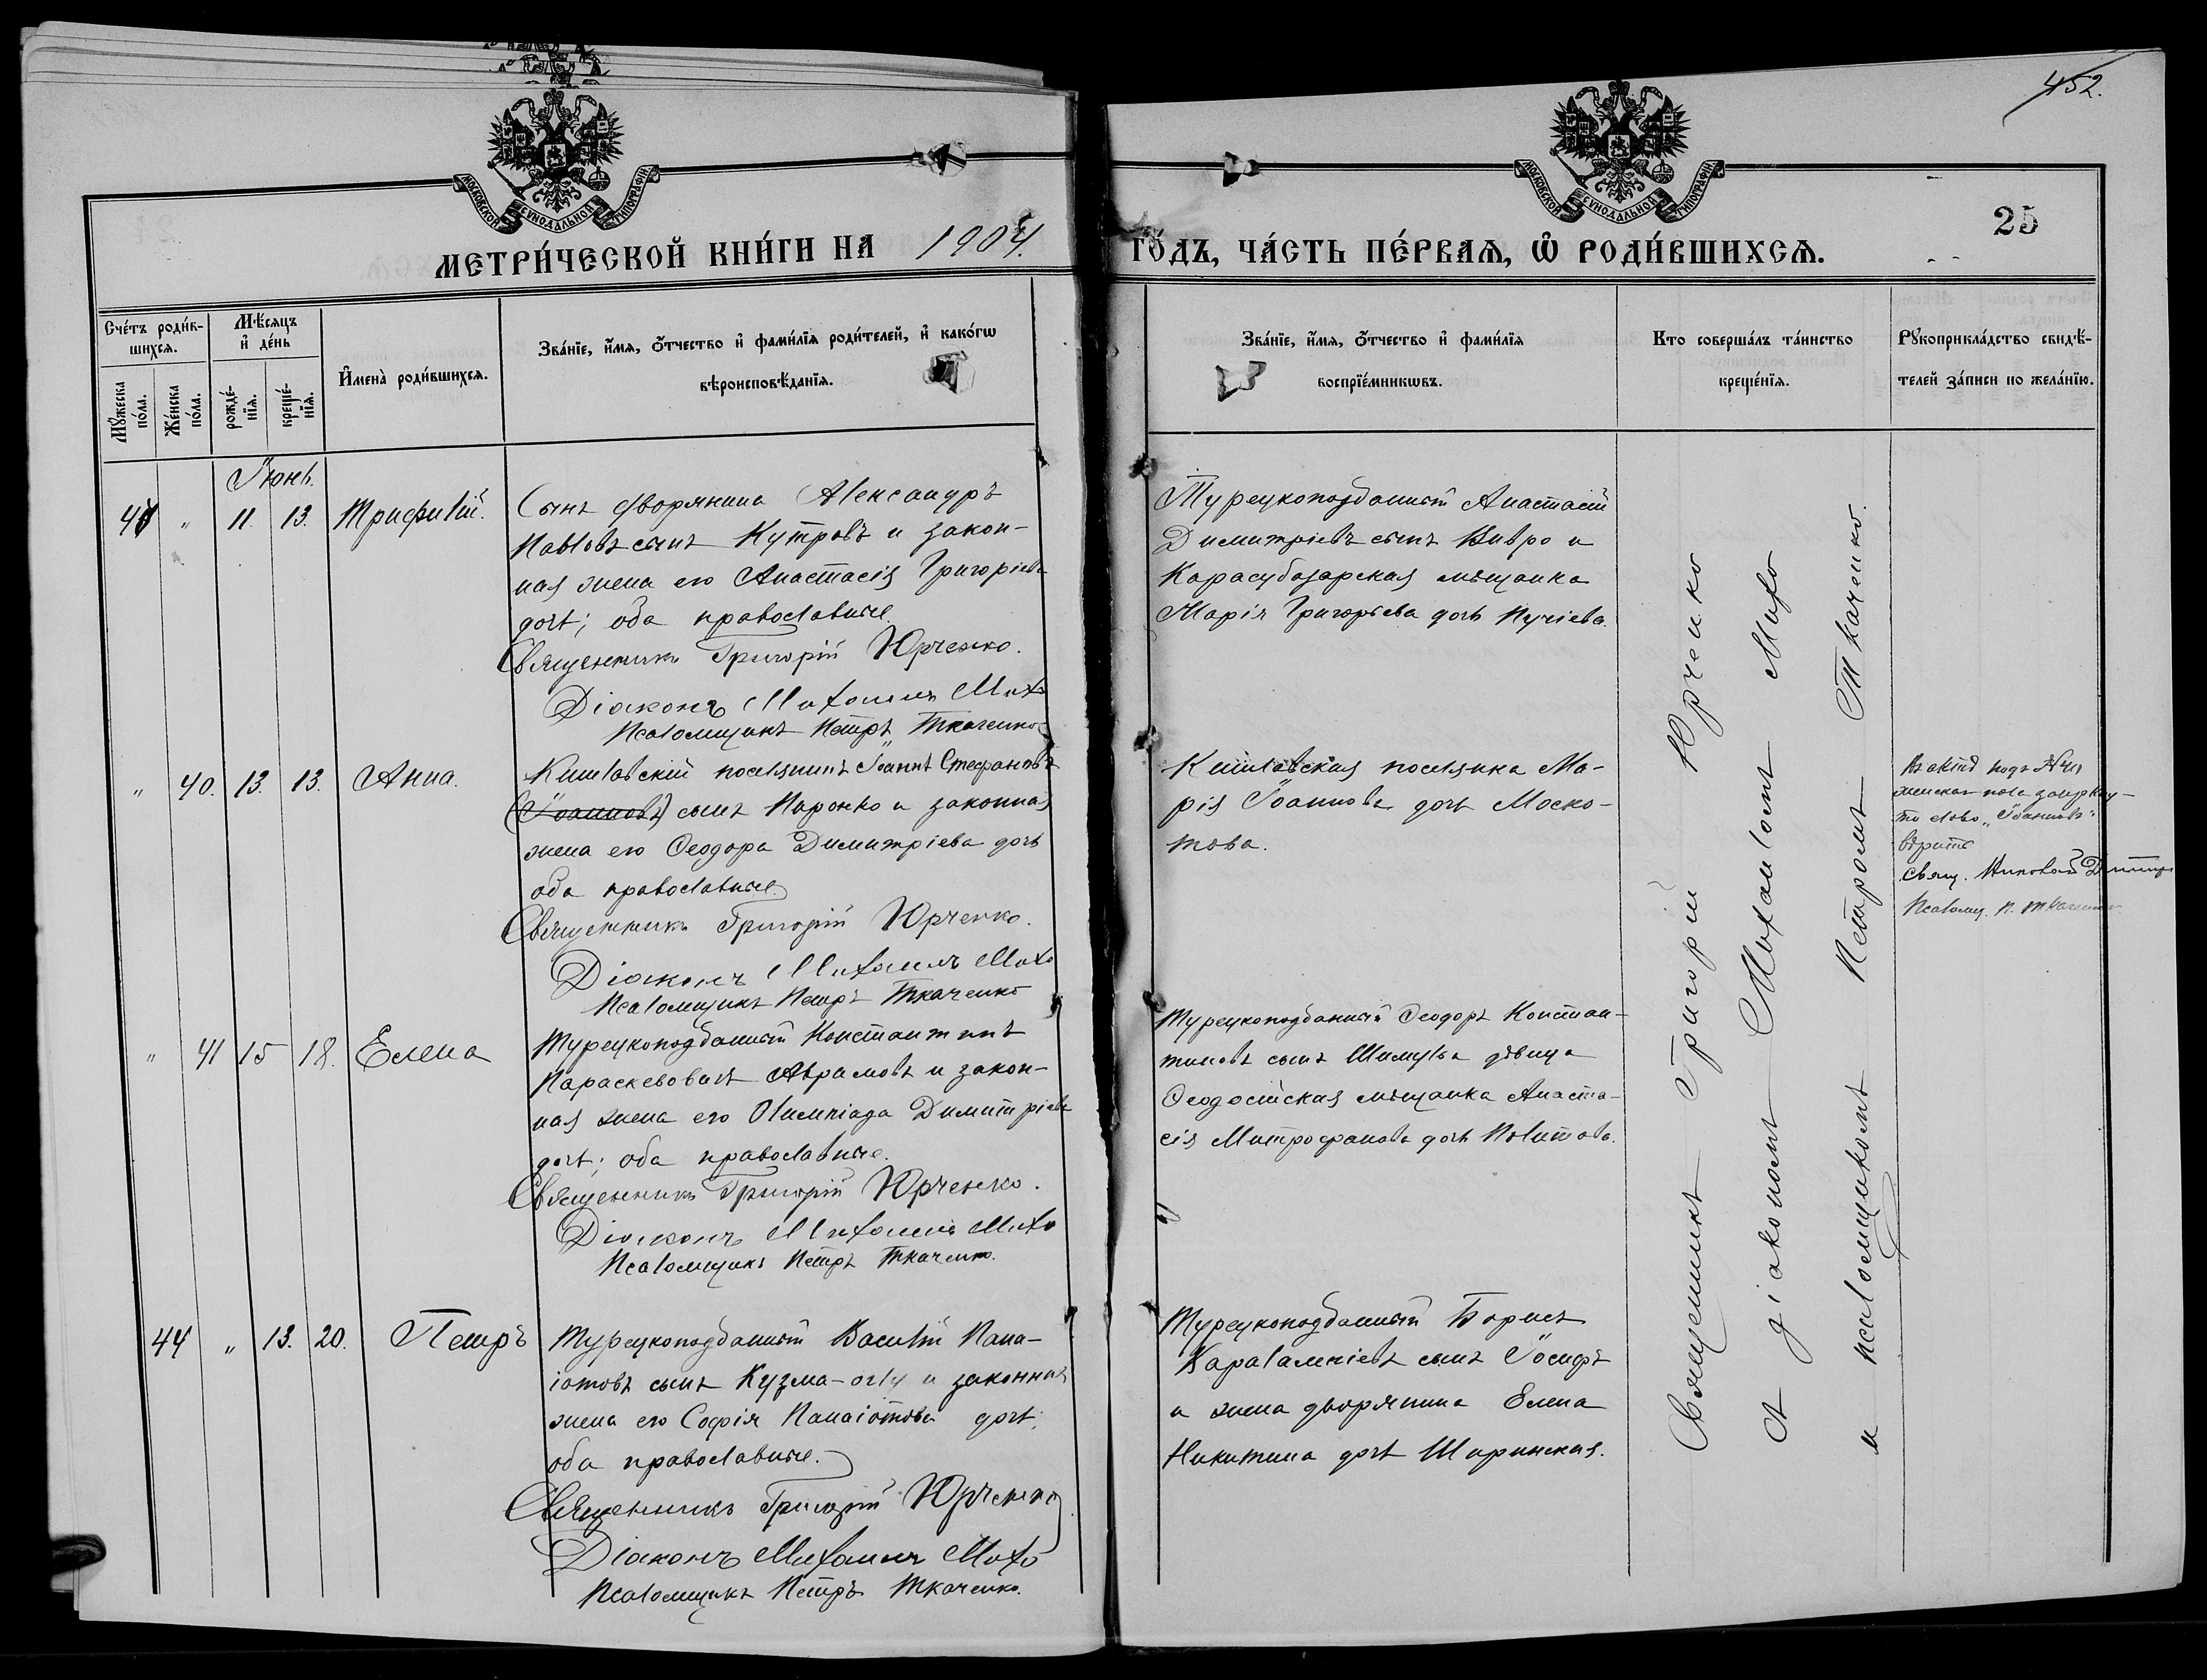 452.
МОСКОВСКОЙ СѴНОДАЛЬНОЙ ТИПОГРАФІИ
МОСКОВСКОЙ СѴНОДАЛЬНОЙ ТИПОГРАФІИ
25
МЕТРИ́ЧЕСКОЙ КНИ́ГИ НА 1904. ГО́ДЪ, ЧА́СТЬ ПЕ́РВАѦ, Ѡ҆ РОДИ́ВШИХСѦ.
Сче́тъ роди́в-
шихсѧ.
Мꙋ́жеска по́ла.
Же́нска по́ла.
Мѣ́сѧцъ
и҆ де́нь
рожде́-
нїѧ.
креще́-
нїѧ.
И҆мена̀ роди́вшихсѧ.
Зва́нїе, и҆́мѧ, ѻ҆́тчество и҆ фами́лїѧ роди́телей, и҆ како́гѡ
вѣроисповѣ́данїѧ.
Зва́нїе, и҆́мѧ, ѻ҆́тчество и҆ фами́лїѧ
воспрїе́мникѡвъ.
Кто соверша́лъ та́инство
креще́нїѧ.
Рꙋкоприкла́дство свидѣ́-
телей за́писи по жела́нїю.
Іюнь.
" 11. 13. Трифилій.
Сынъ дворянина Александръ
Павловъ сынъ Кутровъ и закон-
ная жена его Анастасія Григорьева
дочь; оба православные.
Священникъ Григорій Юрченко.
Діаконъ Михаилъ Михо
Псаломщикъ Петръ Ткаченко
Турецкоподданный Анастасій
Димитріевъ сынъ Вивро и
Карасубазарская мѣщанка
Марія Григорьева дочь Пучіева.
" 40. 13. 13. Анна.
Кишлавскій поселянинъ Іоаннъ Стефановъ
(Іоанновъ) сынъ Паронко и законная
жена его Ѳеодора Димитріева дочь
оба православные.
Священникъ Григорій Юрченко.
Діаконъ Михаилъ Михо
Псаломщикъ Петръ Ткаченко
Кишлавская поселянка Ма-
рія Іоаннова дочь Моско-
това.
женскаго пола зачеркну-
то слово "Іоанновъ"
вѣрить
Свящ. Николай
Псаломщ. П. Ткаченко
" 41 15 18. Елена
Турецкоподданный Константинъ
Параскевовичъ Аврамовъ и закон-
ная жена его Олимпіада Димитріева
дочь; оба православные.
Священникъ Григорій Юрченко.
Діаконъ Михаилъ Михо
Псаломщикъ Петръ Ткаченко.
Турецкоподданный Ѳеодоръ Констан-
тиновъ сынъ Шимула дѣвица
Ѳеодосійская мѣщанка Анаста-
сія Митрофанова дочь Политова.
44 " 13. 20. Петръ
Турецкоподданный Василій Пана-
іотовъ сынъ Кузма-оглу и законная
жена его Софія Панаіотова дочь;
оба православные.
Священникъ Григорій Юрченко
Діаконъ Михаилъ Михо
Псаломщикъ Петръ Ткаченко.
Турецкоподданный Борисъ
Харалампіевъ сынъ Іосифъ
и жена дворянина Елена
Никитина дочь Ширинская.
Священникъ Григорій Юрченко
съ діакономъ Михаиломъ Михо
и псаломщикомъ Петромъ Ткаченко.